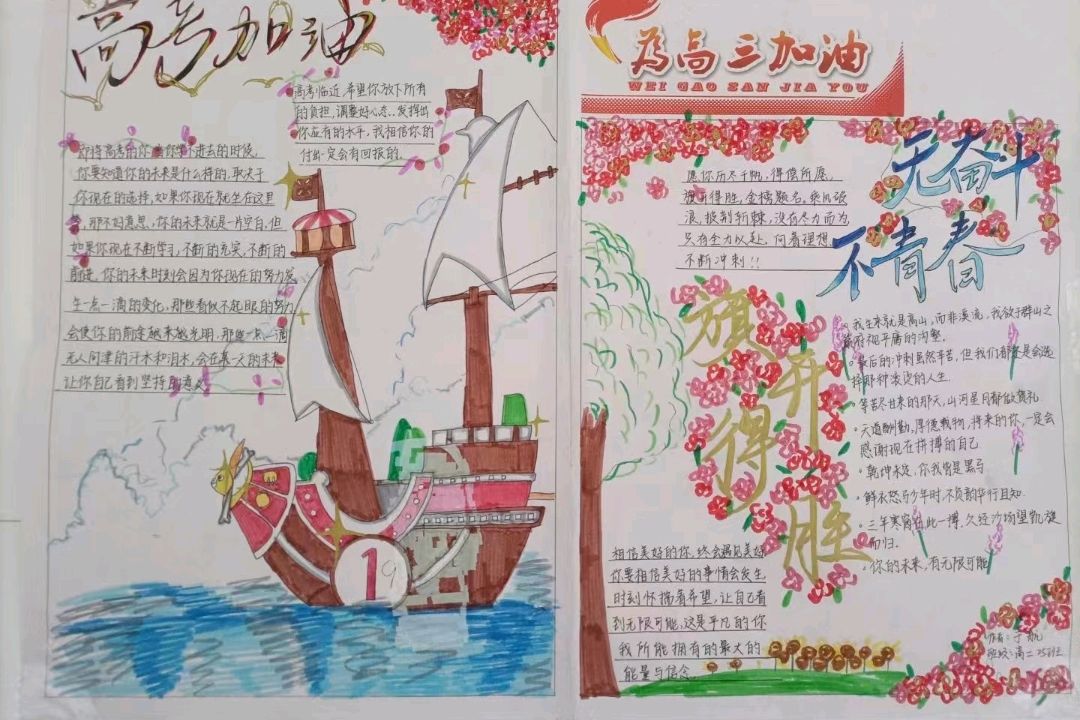 高考加油
高考临近,希望你放下所有
的负担,调整好心态..发挥出
你应有的水平,我相信你的
付出一定会有回报的.
即将高考的你,当你学不进去的时候,
你要知道你的未来是什么样的,取决于
你现在的选择,如果你现在就坐在这里
那不好意思,你的未来就是一片空白,但
如果你现在不断学习,不断的充实,不断的
前进,你的未来时刻会因为你现在的努力发
生一点一滴的变化,那些看似不起眼的努力
会使你的前途越来越光明,那些一点一滴
无人问津的汗水和泪水,会在某一天的未来
让你自己看到坚持的意义
19
为高三加油
WEI GAO SAN JIA YOU
无奋斗
不青春
愿你历尽千帆,得偿所愿,
旗开得胜,金榜题名,乘风破
浪,披荆斩棘,没有尽力而为
只有全力以赴,向着理想
不断冲刺!!
旗开得胜
·我生来就是高山,而非溪流,我欲于群山之
巅府视平庸的沟壑.
·最后的冲刺虽然辛苦,但我们都是会选
择那种滚烫的人生.
·等苦尽甘来的那天,山河星月都做贺礼
·天道酬勤,厚德载物,将来的你,一定会
感谢现在拼搏的自己
·乾坤未定,你我皆是黑马
·鲜衣怒马少年时,不负韶华行且知.
·三年寒窗在此一搏,久经沙场望凯旋
而归.
·你的未来,有无限可能
相信美好的你,终会遇见美好
你要相信美好的事情会发生
时刻怀揣着希望,让自己看
到无限可能,这是平凡的你
我所能拥有的最大的
能量与信念.
作者:于航
班级:高二